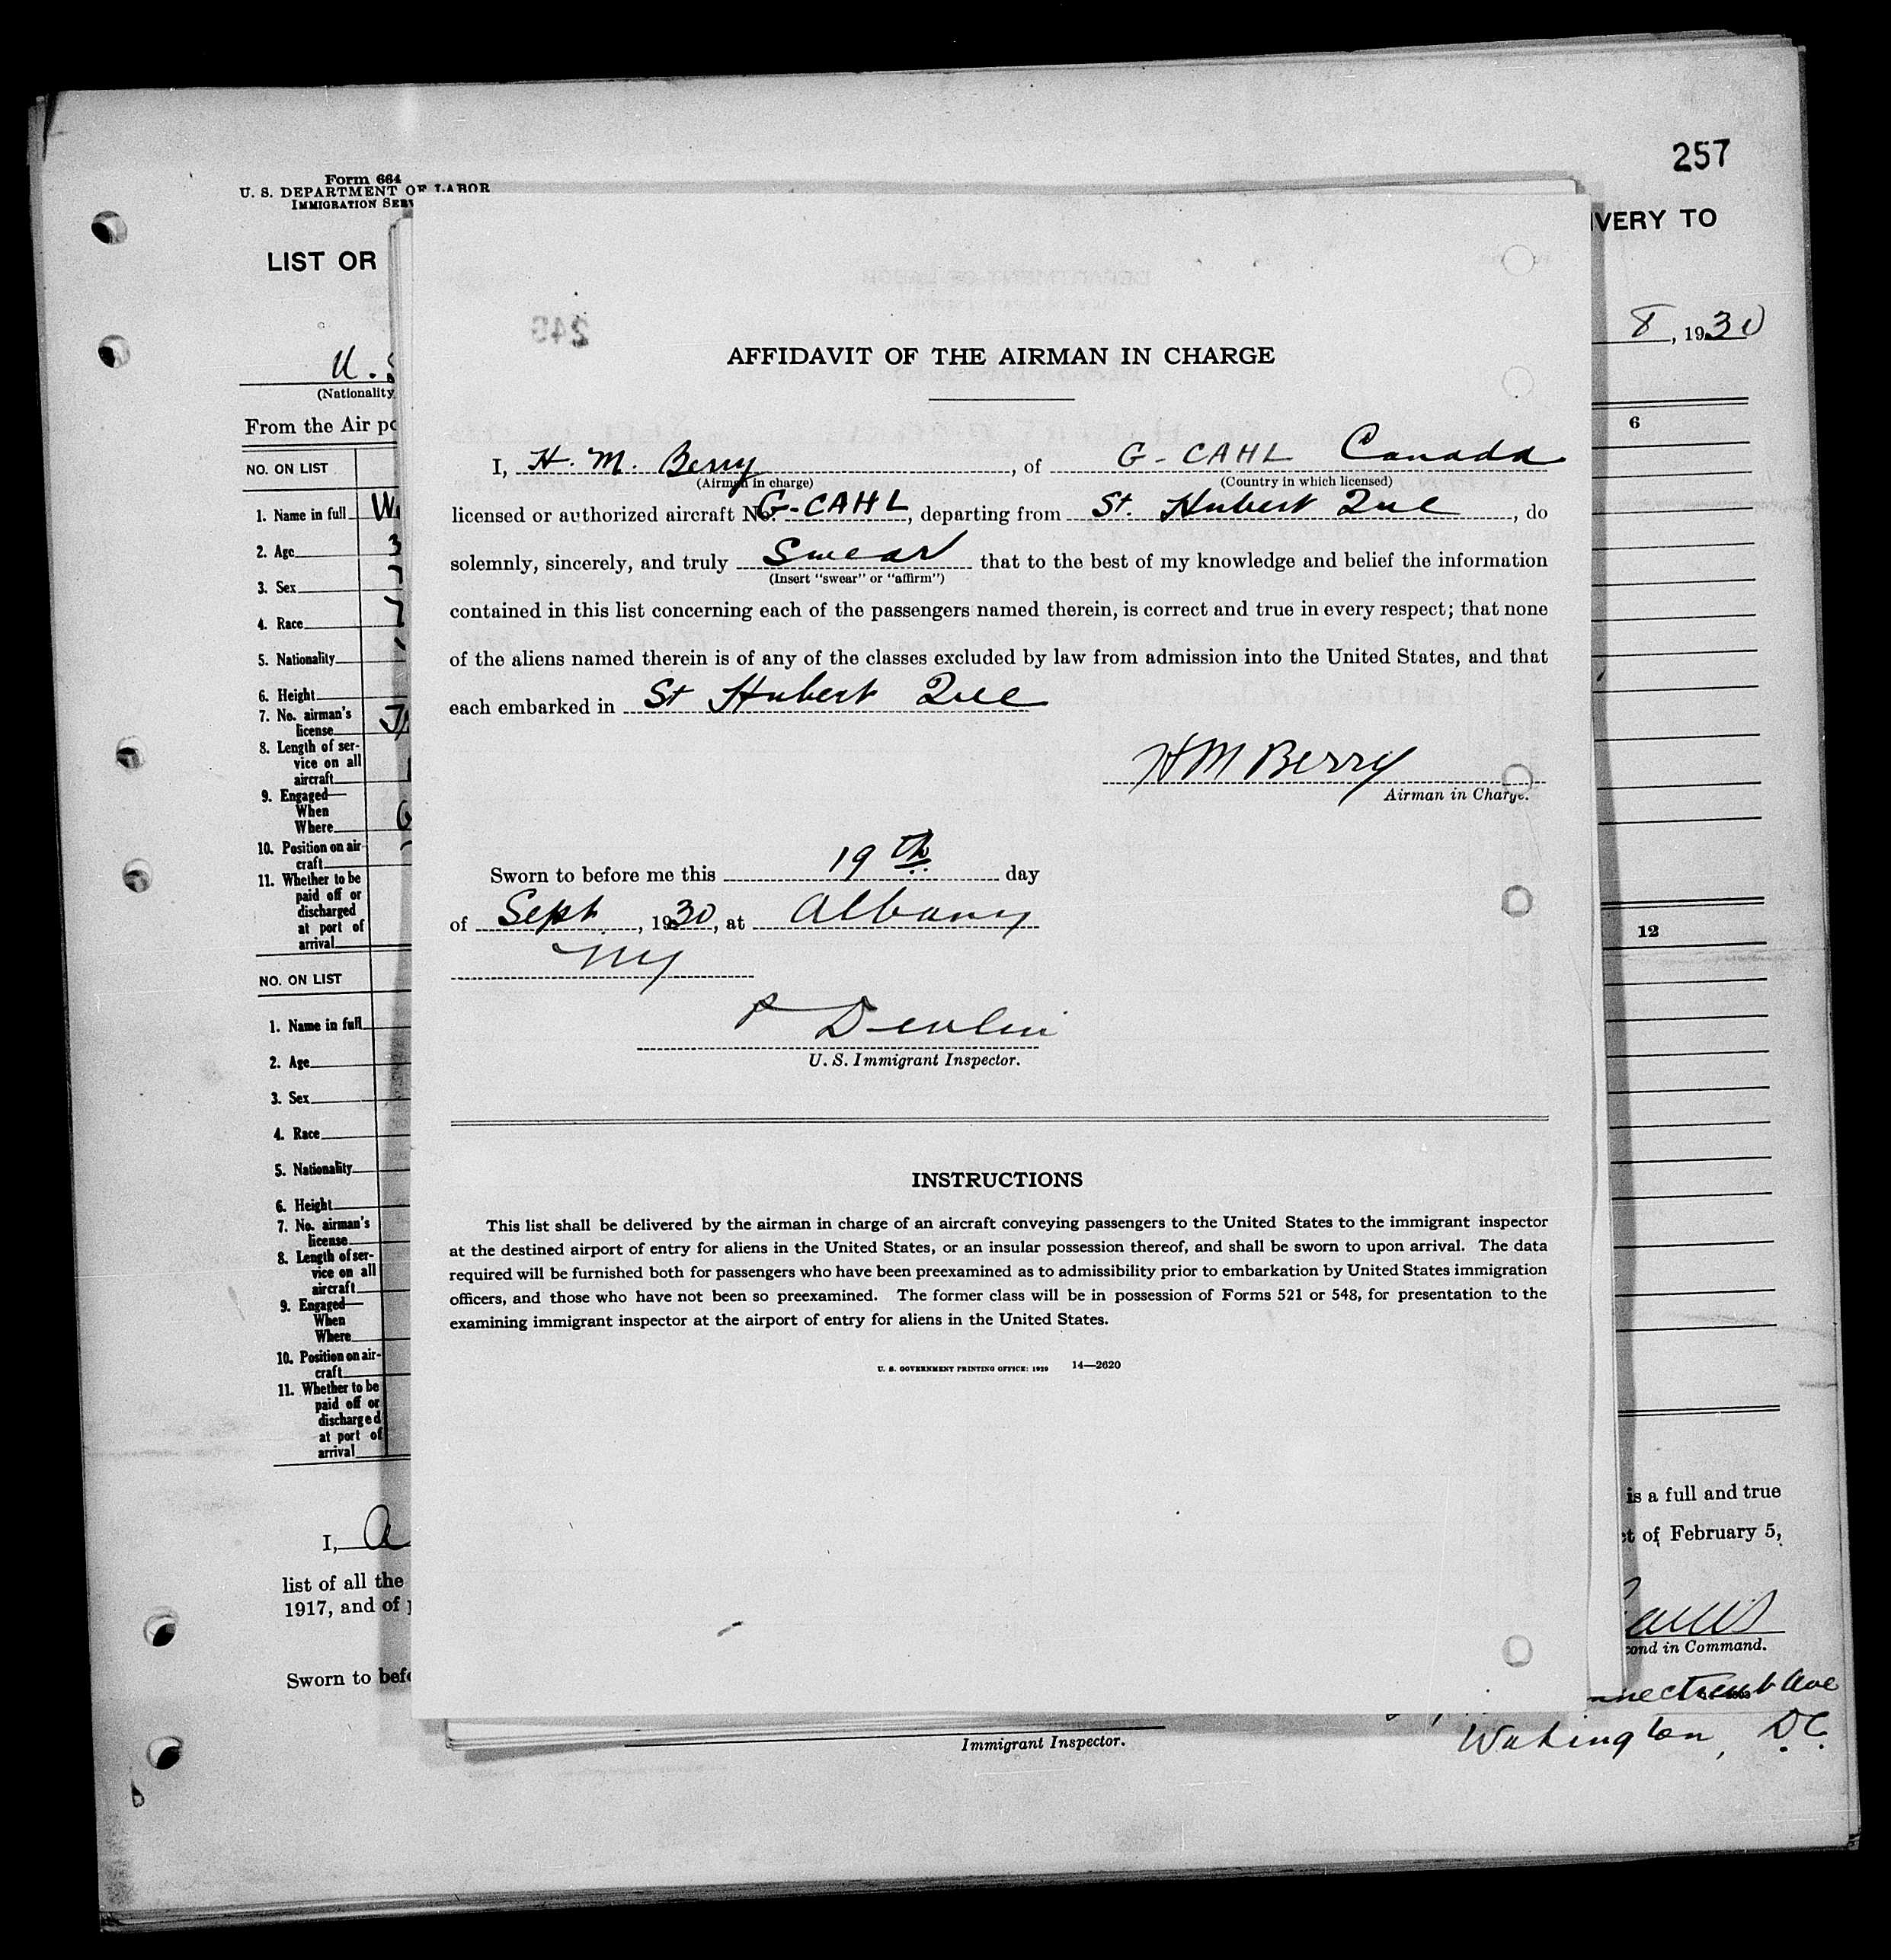 257
Form 664
U. S. DEPARTMENT OF LABOR
IMMIGRATION SERV
LIST OR
IVERY TO
8, 1930
U. S
(Nationality
From the Air po
NO. ON LIST
6
1. Name in full
2. Age
3. Sex
4. Race
5. Nationality
6. Height
7. No. airman's
license
8. Length of ser-
vice on all
aircraft
9. Engaged—
When
Where
10. Position on air-
craft
11. Whether to be
paid off or
discharged
at port of
arrival
12
NO. ON LIST
1. Name in full
2. Age
3. Sex
4. Race
5. Nationality
6. Height
7. No. airman's
license
8. Length of ser-
vice on all
aircraft
9. Engaged—
When
Where
10. Position on air-
craft
11. Whether to be
paid off or
discharged
at port of
arrival
I, a
is a full and true
list of all the
ct of February 5,
1917, and of p
cond in Command.
Sworn to befo
nnecticut Ave
Wahington, D.C.
Immigrant Inspector.
249
AFFIDAVIT OF THE AIRMAN IN CHARGE
I, H. M. Berry, of G-CAHL Canada
(Airman in charge) (Country in which licensed)
licensed or authorized aircraft No. G-CAHL, departing from St. Hubert Que, do
solemnly, sincerely, and truly swear that to the best of my knowledge and belief the information
(Insert "swear" or "affirm")
contained in this list concerning each of the passengers named therein, is correct and true in every respect; that none
of the aliens named therein is of any of the classes excluded by law from admission into the United States, and that
each embarked in St Hubert Que
HM Berry
Airman in Charge.
Sworn to before me this 19th day
of Sept, 1930, at Albany
NY
P Devlin
U. S. Immigrant Inspector.
INSTRUCTIONS
This list shall be delivered by the airman in charge of an aircraft conveying passengers to the United States to the immigrant inspector
at the destined airport of entry for aliens in the United States, or an insular possession thereof, and shall be sworn to upon arrival. The data
required will be furnished both for passengers who have been preexamined as to admissibility prior to embarkation by United States immigration
officers, and those who have not been so preexamined. The former class will be in possession of Forms 521 or 548, for presentation to the
examining immigrant inspector at the airport of entry for aliens in the United States.
U. S. GOVERNMENT PRINTING OFFICE: 1929 14—2620